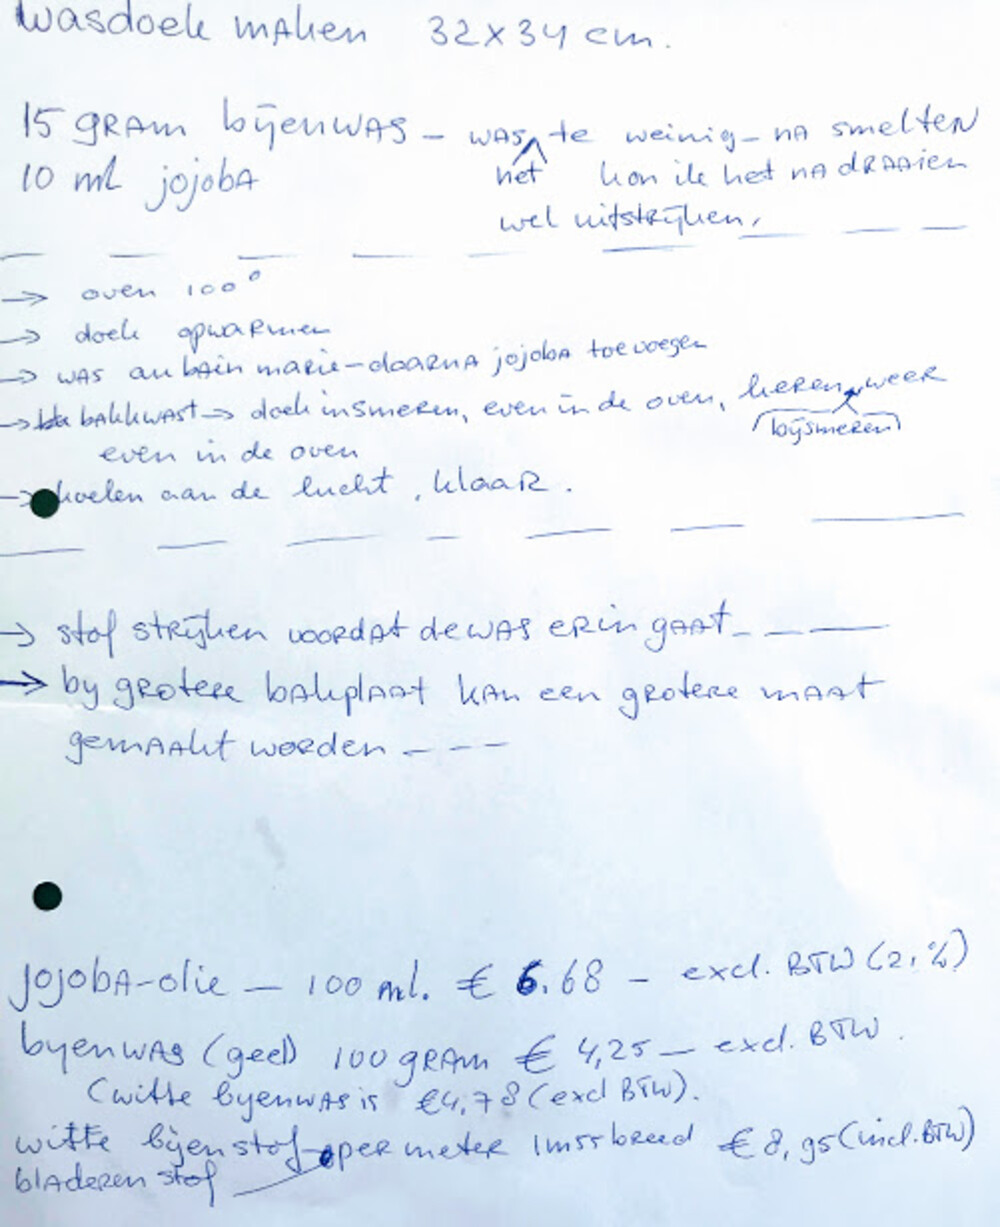 wasdoek maken 32x34 cm.
15 gram bijenwas - was het te weinig - na smelten
10 ml jojoba kon ik het na draaien
wel uitstrijken.
→ oven 100°
→ doek opwarmen
→ was au bain marie - daarna jojoba toevoegen
→ bakkwast → doek insmeren, even in de oven, keren, (bijsmeren) weer
even in de oven
→ koelen aan de lucht, klaar.
→ stof strijken voordat de was erin gaat
→ by grotere bakplaat kan een grotere maat
gemaakt worden ---
jojoba-olie - 100 ml. € 6.68 - excl. BTW (21%)
byenwas (geel) 100 gram € 4,25 - excl. BTW.
(witte byenwas is €4,78 (excl BTW).
witte bijen stof per meter 1m55 breed € 8,95 (incl. BTW)
bladeren stof